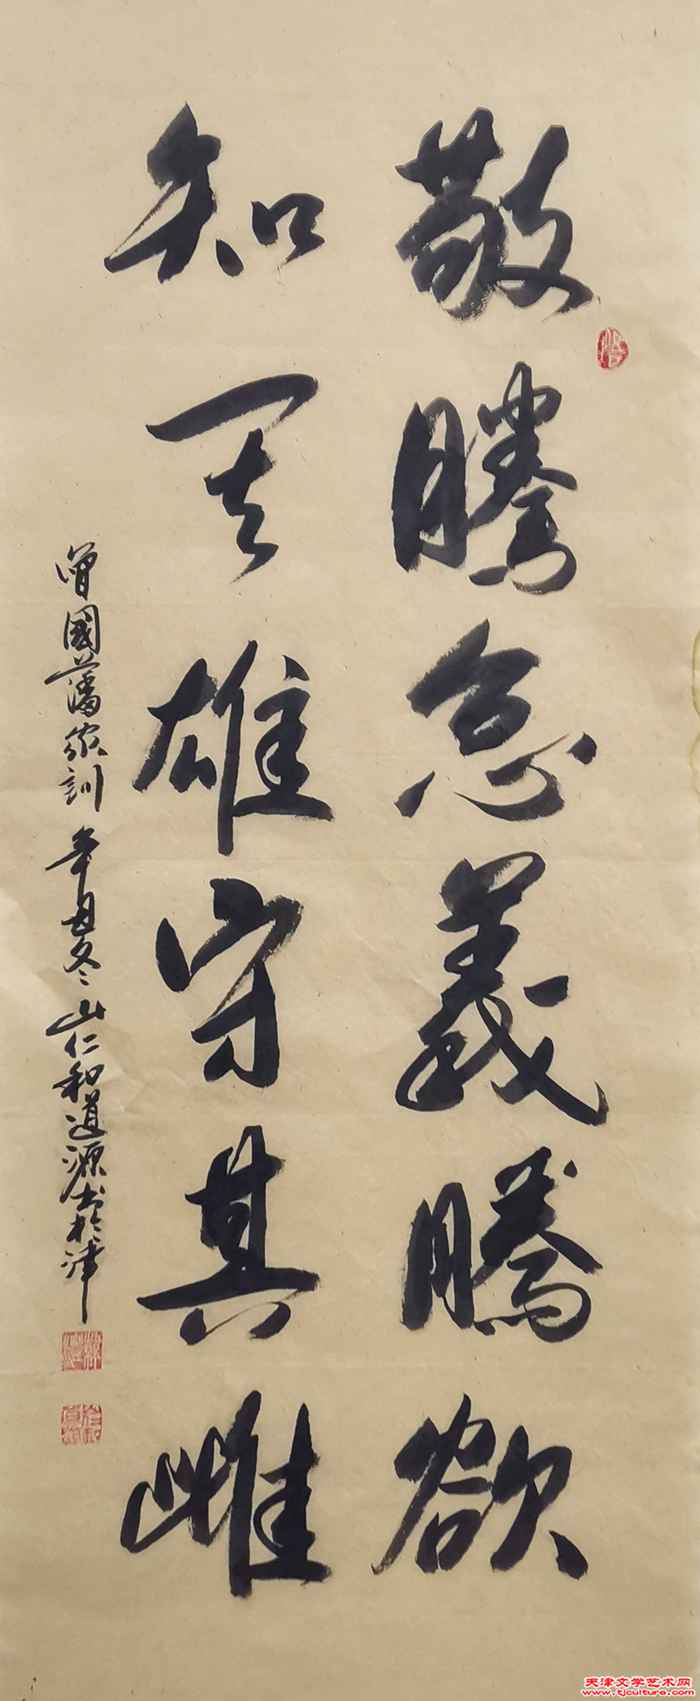 敬騰怠義騰欲
知其雄守其雌
曾國藩家訓 辛丑冬 山仁和道源書於津
天津文学艺术网
www.tjculture.com